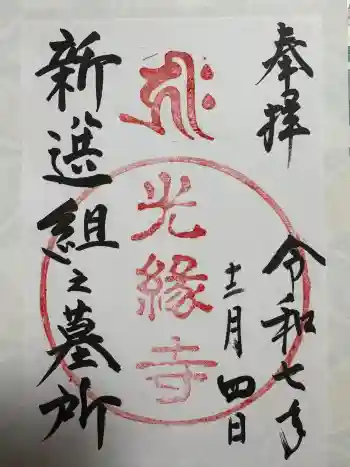 奉拝
令和七年
十二月四日
キリーク
光縁寺
新選組之墓所